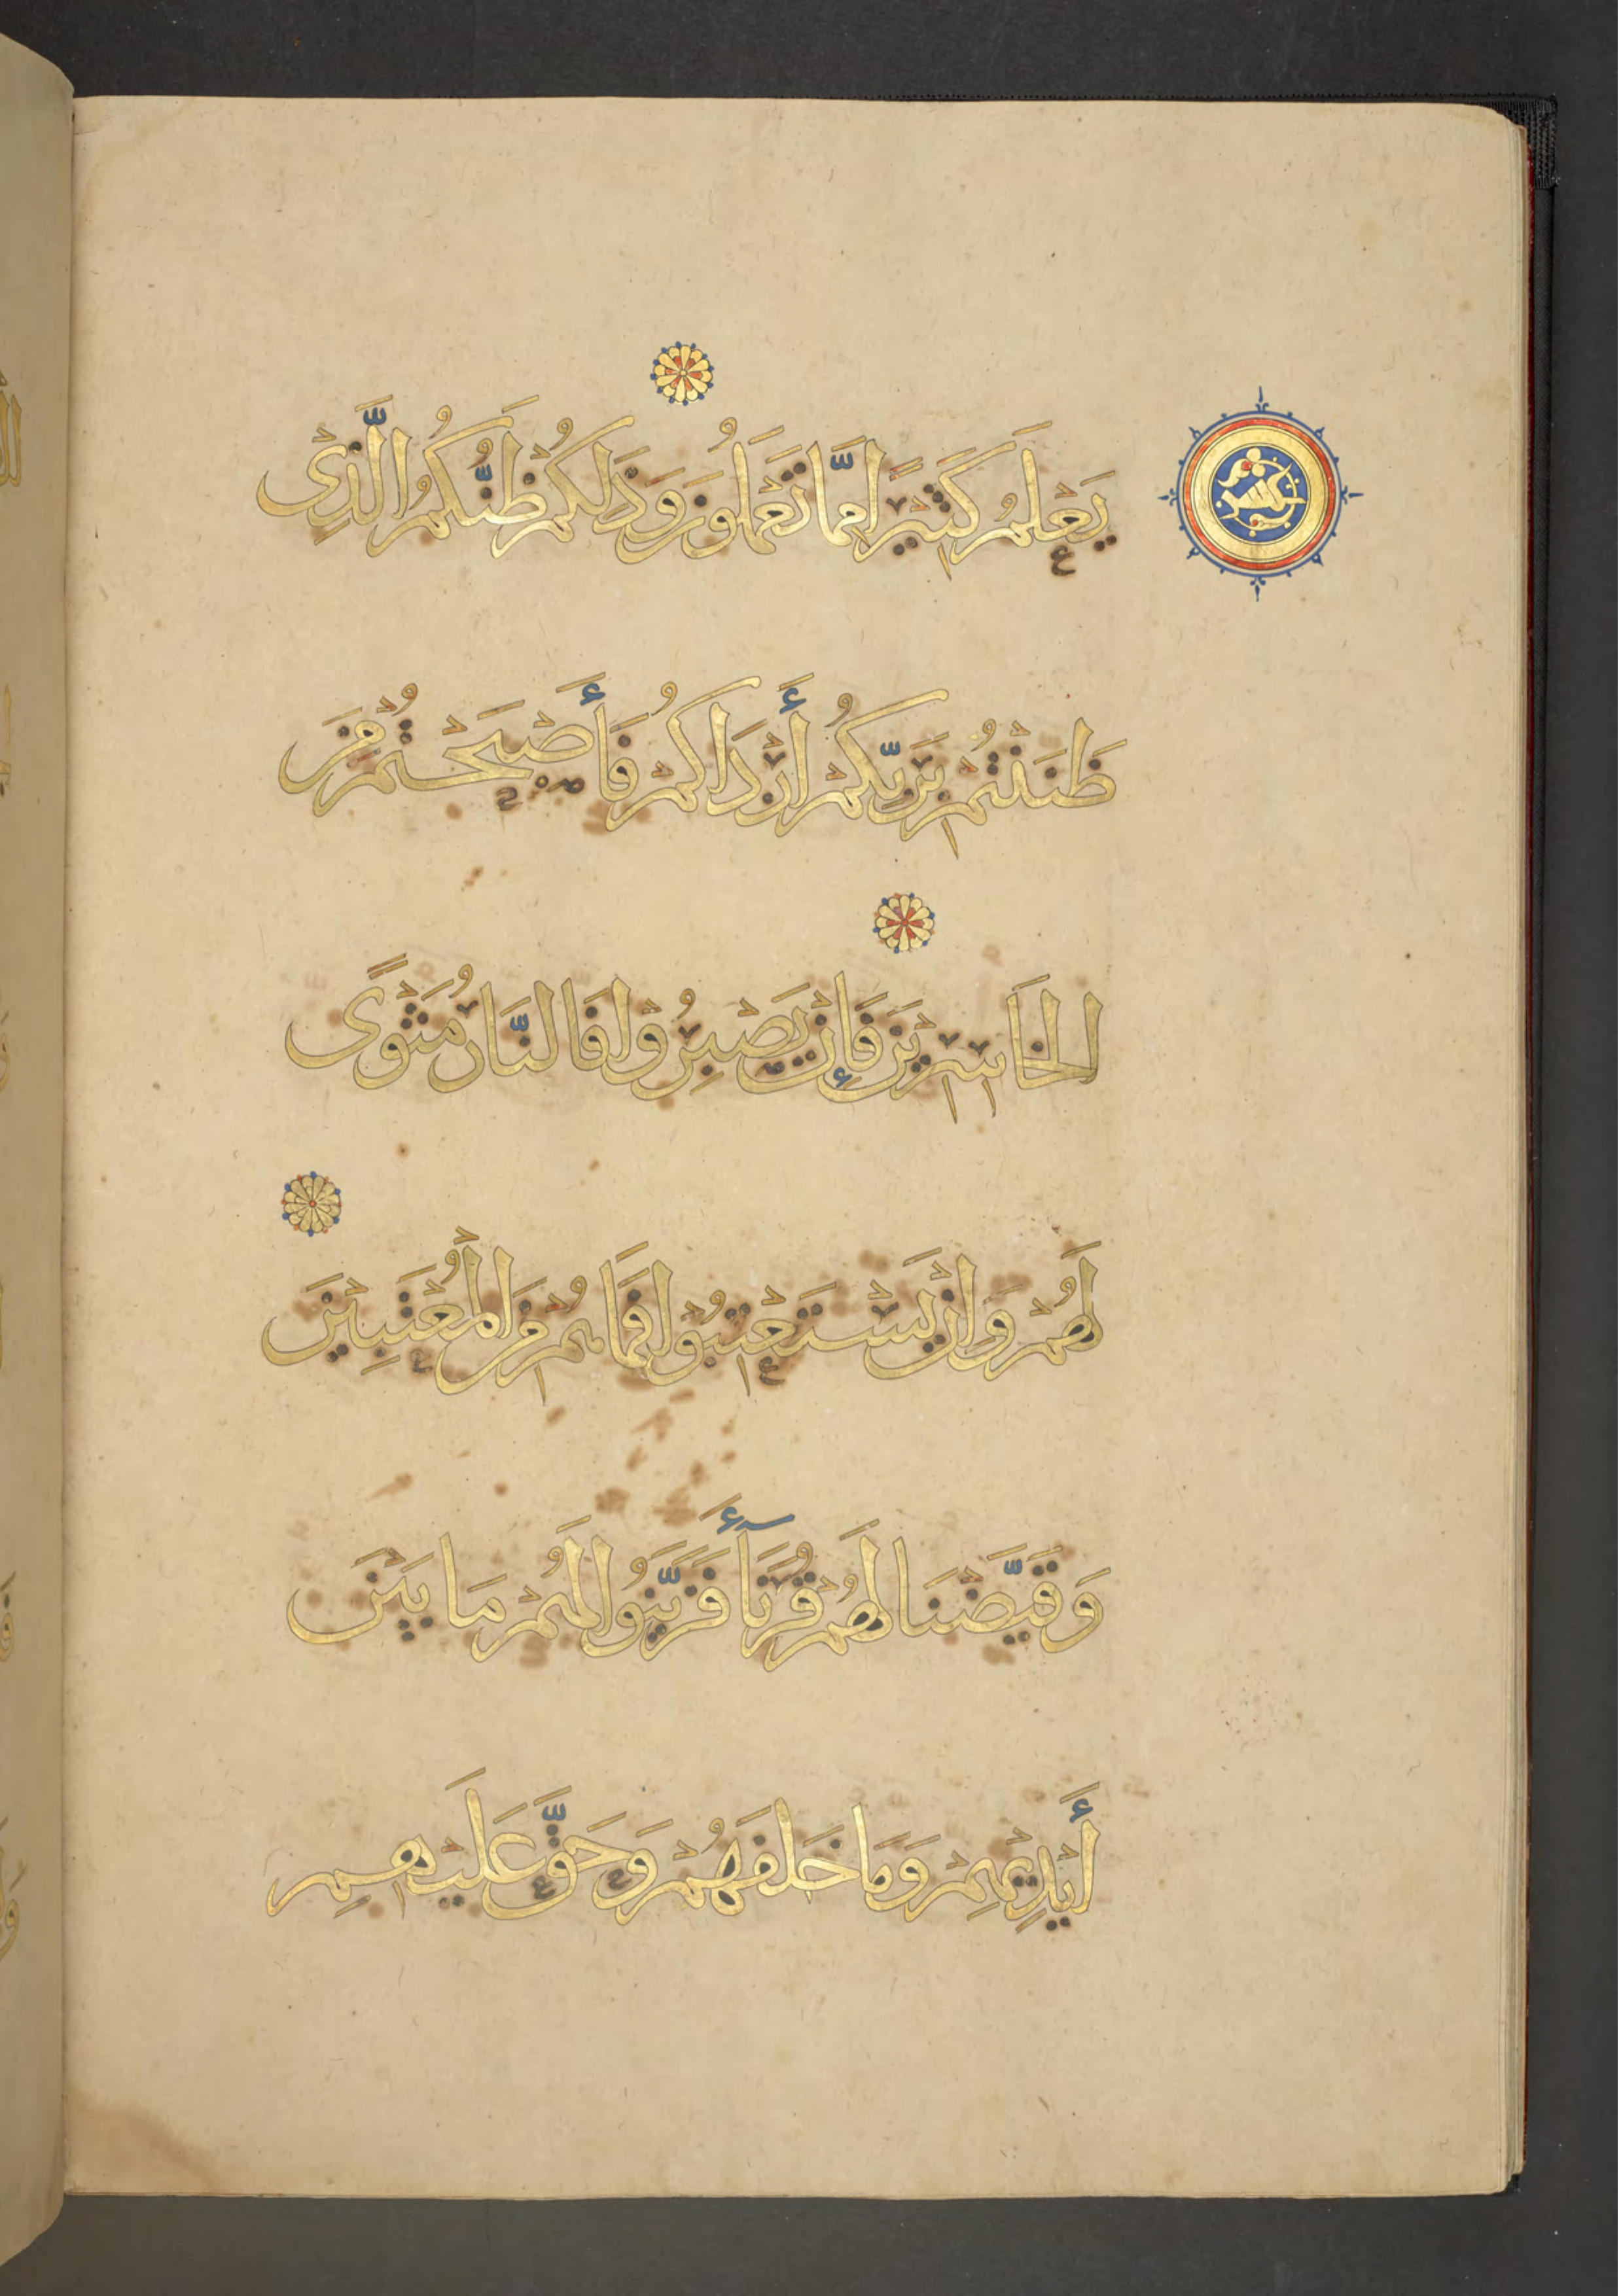 يَعْلَمُ كَثِيرًا مِمَّا تَعْمَلُونَ وَذَلِكُمْ ظَنُّكُمُ الَّذِى
ظَنَنْتُمْ بِرَبِّكُمْ أَرْدَاكُمْ فَأَصْبَحْتُمْ مِنَ
الْخَاسِرِينَ فَإِنْ يَصْبِرُوا فَالنَّارُ مَثْوًى
لَهُمْ وَإِنْ يَسْتَعْتِبُوا فَمَا هُمْ مِنَ الْمُعْتَبِينَ
وَقَيَّضْنَا لَهُمْ قُرَنَآءَ فَزَيَّنُوا لَهُمْ مَا بَيْنَ
أَيْدِيهِمْ وَمَا خَلْفَهُمْ وَحَقَّ عَلَيْهِمُ